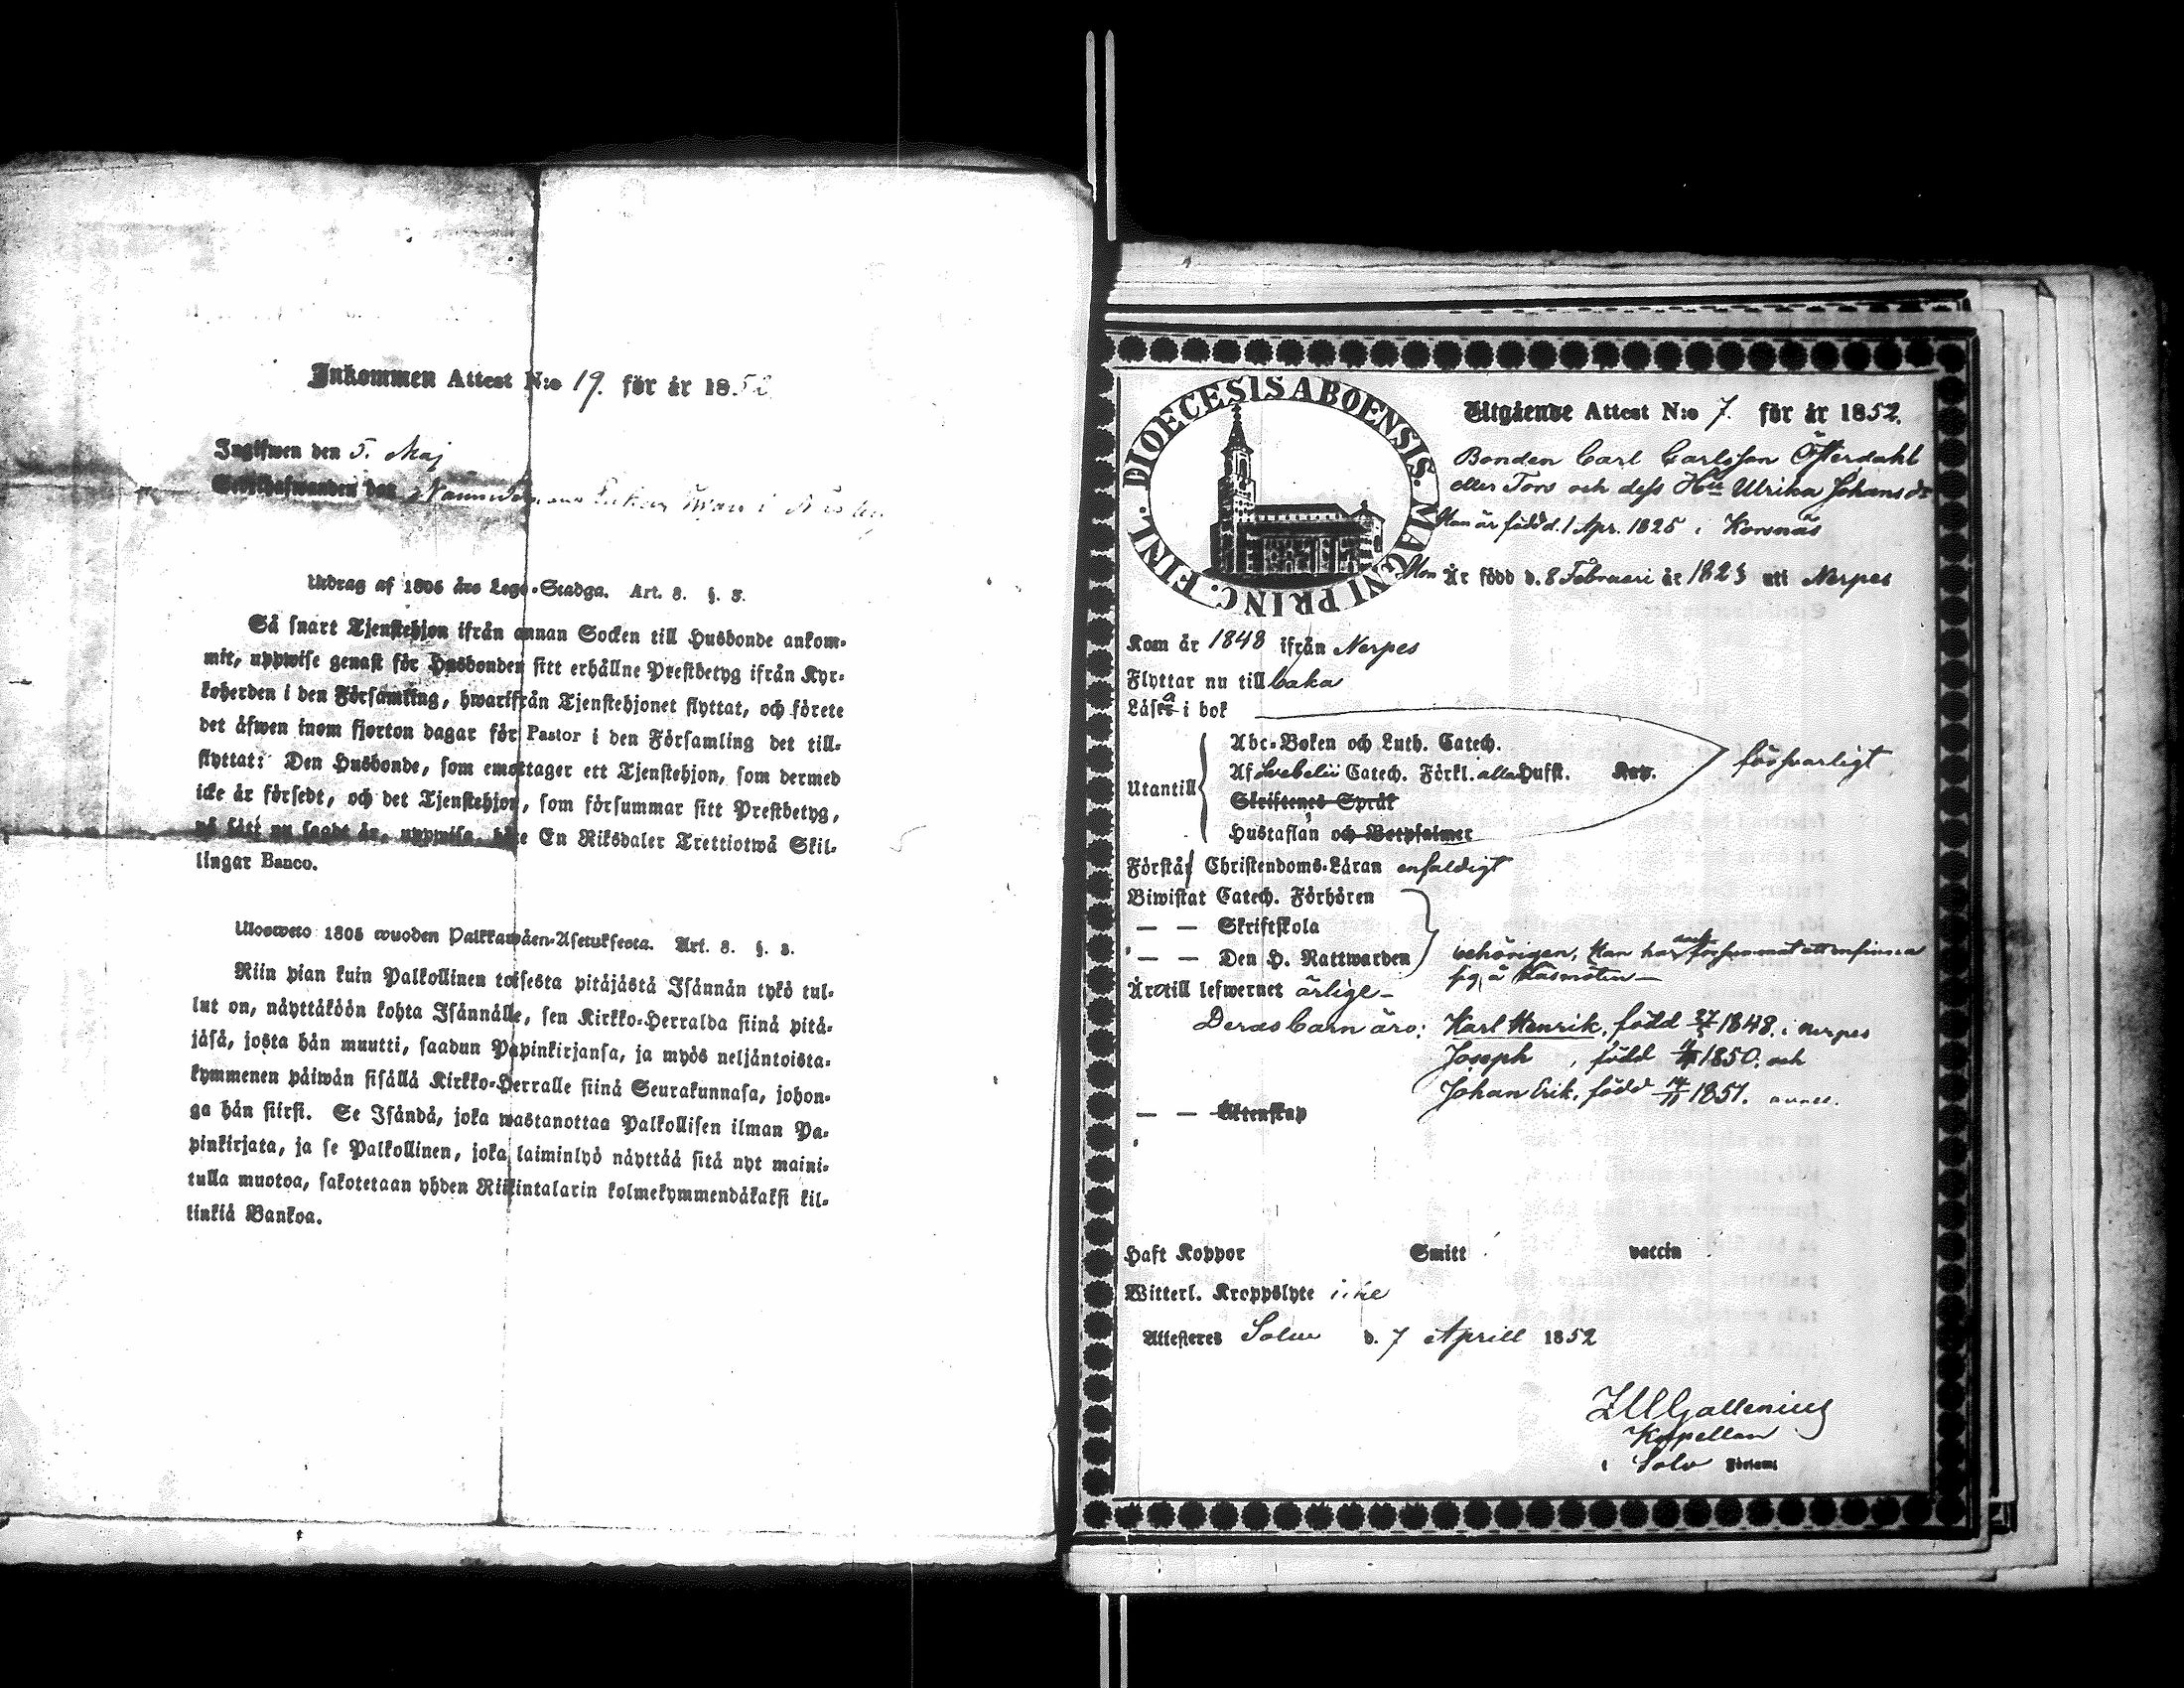 Inkommen Attest N:o 19. för år 1852
Ingifwen den 5. Maj
Utdrag af 1805 års Lego-Stadga. Art. 8. §. 3.
Så snart Tjenstehjon ifrån annan Socken till Husbonde ankom-
mit, uppwise genast för Husbonden sitt erhållne Prestbetyg ifrån Kyr-
koherden i den Församling, hwarifrån Tjenstehjonet flyttat, och förete
det äfwen inom fjorton dagar för Pastor i den Församling det till-
flyttat: Den Husbonde, som emottager ett Tjenstehjon, som dermed
icke är försedt, och det Tjenstehjon, som försummar sitt Prestbetyg,
på sätt nu sagdt är, uppwisa, böte En Riksdaler Trettiotwå Skil-
lingar Banco.
Ulosweto 1805 wuoden Palkkawäen-Asetuksesta. Art. 8. §. 3.
Niin pian kuin Palkollinen toisesta pitäjästä Isännän tykö tul-
lut on, näyttäköön kohta Isännälle, sen Kirkko-Herralda siinä pitä-
jäsä, josta hän muutti, saadun Papinkirjansa, ja myös neljäntoista-
kymmenen päiwän sisällä Kirkko-Herralle siinä Seurakunnasa, johon-
ga hän siirsi. Se Isändä, joka wastanottaa Palkollisen ilman Pa-
pinkirjata, ja se Palkollinen, joka laiminlyö näyttää sitä nyt maini-
tulla muotoa, sakotetaan yhden Riikintalarin kolmekymmendäkaksi kil-
linkiä Bankoa.
DIOECESIS ABOENSIS. MAGNI PRINC. FINL.
Utgående Attest N:o 7. för år 1852.
Bonden Carl Carlsson Österdahl
eller Tors och dess Hu Ulrika Johansdr
Han är född d. 1 Apr. 1825 i Korsnäs
Hon är född d. 8 Februari år 1823 uti Nerpes
Kom år 1848 ifrån Nerpes
Flyttar nu tillbaka
Läsa i bok
Abc-Boken och Luth. Catech.
Utantill Af Svebelii Catech. Förkl. alla Hufst. Kap. försvarligt
Skriftenes Språk
Hustaflan och Botpsalmer
Förstår Christendoms-Läran enfaldigt
Biwistat Catech. Förhören
— — Skriftskola
— — Den H. Nattwarden behörigen, Han har försummat att infinna
sig å Läsmöten —
Äro till lefwernet ärlige —
Deras barn äro: Karl Henrik, född 27/3 1848. i Nerpes
Joseph, född 1850. och
Johan Erik, född 14/11 1851.
— — Äktenskap
Haft Koppor Smitt vaccin
Witterl. Kroppslyte icke
Attesteres Solw d. 7 Aprill 1852
Gallenius
Kapellan
i Solv Församl